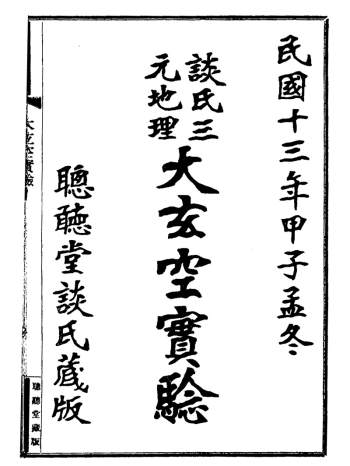 民國十三年甲子孟冬
談氏三
元地理
大玄空實驗
聰聽堂談氏藏版
大玄空實驗
聰聽堂藏版